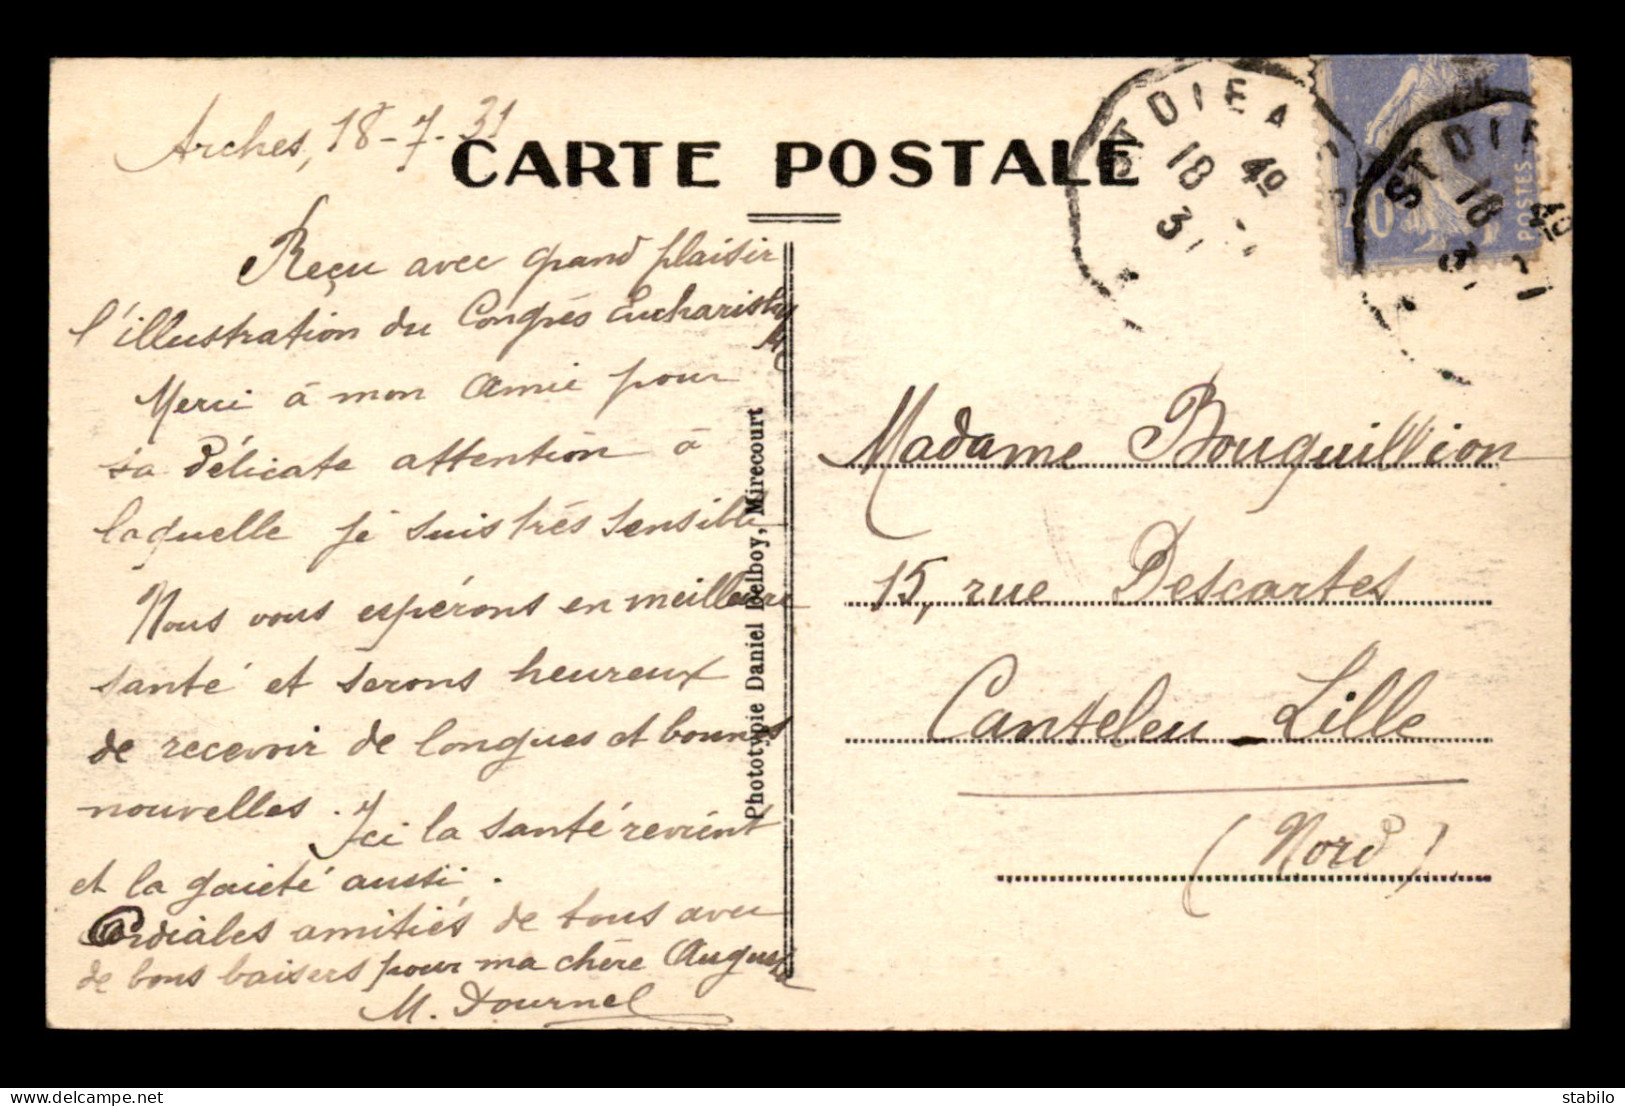 Arches, 18-7-31
CARTE POSTALE
Reçu avec grand plaisir
l'illustration du Congrès Eucharistique
Merci à mon Amie pour
sa délicate attention à
laquelle je suis très sensible
Nous vous espérons en meilleure
santé et serons heureux
de recevoir de longues et bonnes
nouvelles. Ici la santé revient
et la gaieté aussi.
Cordiales amitiés de tous avec
de bons baisers pour ma chère Auguste
M. Tournel
Phototypie Daniel Delboy, Mirecourt
ST DIE A
18 40
3
POSTES
ST DIE
18 40
Madame Bouquillion
15, rue Descartes
Canteleu - Lille
(Nord)
delcampe.net
stabilo